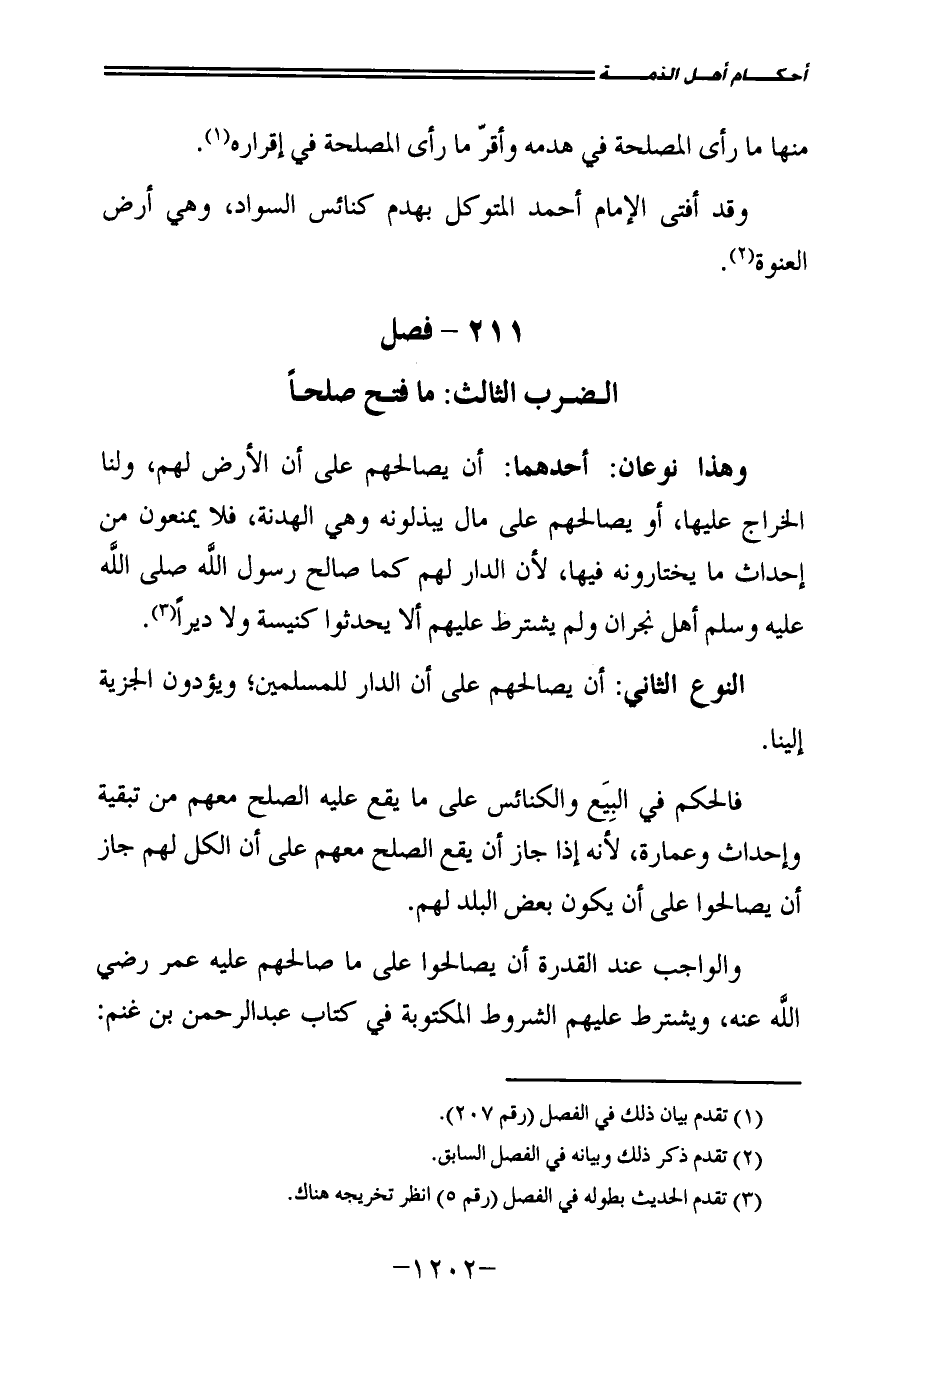 أحكام أهل الذمة
منها ما رأى المصلحة في هدمه وأقرّ ما رأى المصلحة في إقراره(١).
وقد أفتى الإمام أحمد المتوكل بهدم كنائس السواد، وهي أرض
العنوة(٢).
٢١١ - فصل
الضرب الثالث: ما فتح صلحاً
وهذا نوعان: أحدهما: أن يصالحهم على أن الأرض لهم، ولنا
الخراج عليها، أو يصالحهم على مال يبذلونه وهي الهدنة، فلا يمنعون من
إحداث ما يختارونه فيها، لأن الدار لهم كما صالح رسول اللَّه صلى اللَّه
عليه وسلم أهل نجران ولم يشترط عليهم ألا يحدثوا كنيسة ولا ديراً(٣).
النوع الثاني: أن يصالحهم على أن الدار للمسلمين؛ ويؤدون الجزية
إلينا.
فالحكم في البِيَع والكنائس على ما يقع عليه الصلح معهم من تبقية
وإحداث وعمارة، لأنه إذا جاز أن يقع الصلح معهم على أن الكل لهم جاز
أن يصالحوا على أن يكون بعض البلد لهم.
والواجب عند القدرة أن يصالحوا على ما صالحهم عليه عمر رضي
اللَّه عنه، ويشترط عليهم الشروط المكتوبة في كتاب عبدالرحمن بن غنم:
(١) تقدم بيان ذلك في الفصل (رقم ٢٠٧).
(٢) تقدم ذكر ذلك وبيانه في الفصل السابق.
(٣) تقدم الحديث بطوله في الفصل (رقم ٥) انظر تخريجه هناك.
-١٢٠٢-